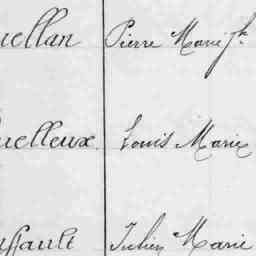 uellan Pierre Marie Jh.
uelleux. Louis Marie
ussault Julien Marie